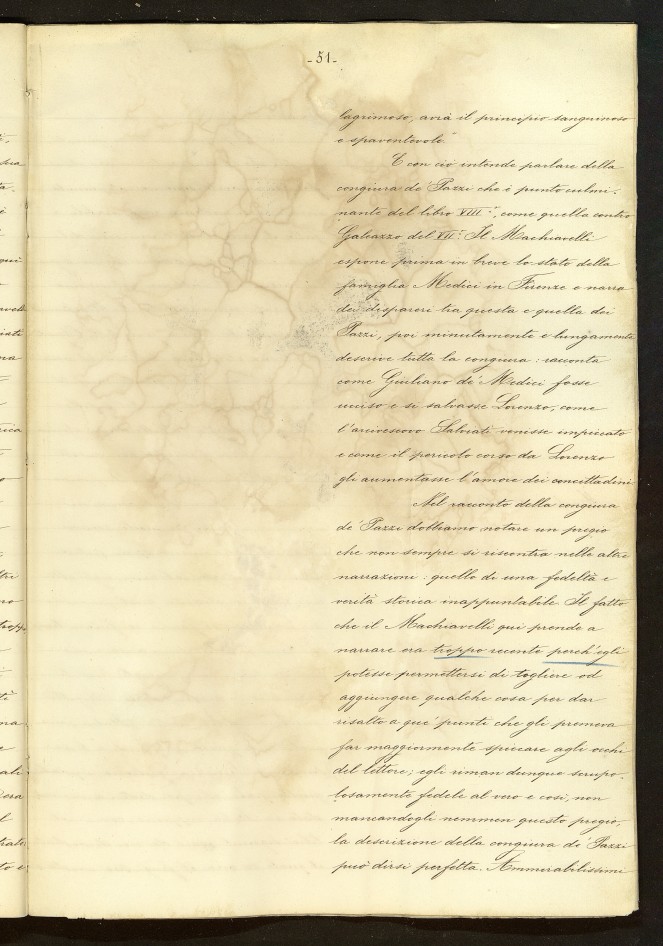 -51-
lagrimoso, avrà il principio sanguinoso
e spaventevole"
E con ciò intende parlare della
congiura de' Pazzi che è punto culmi-
nante del libro VIII°, come quella contro
Galeazzo del VII°. Il Machiavelli
espone prima in breve lo stato della
famiglia Medici in Firenze e narra
dei dispareri tra questa e quella dei
Pazzi, poi minutamente e lungamente
descrive tutta la congiura: racconta
come Giuliano de' Medici fosse
ucciso e si salvasse Lorenzo, come
l'arcivescovo Salviati venisse impiccato
e come il pericolo corso da Lorenzo
gli aumentasse l'amore dei concittadini
Nel racconto della congiura
de' Pazzi dobbiamo notare un pregio
che non sempre si riscontra nelle altre
narrazioni: quello di una fedeltà e
verità storica inappuntabile Il fatto
che il Machiavelli qui prende a
narrare era troppo recente perch'egli
potesse permettersi di togliere od
aggiungere qualche cosa per dar
risalto a que' punti che gli premeva
far maggiormente spiccare agli occhi
del lettore; egli riman dunque scrupo-
losamente fedele al vero e così, non
mancandogli nemmen questo pregio,
la descrizione della congiura de' Pazzi
può dirsi perfetta. Ammirabilissimi